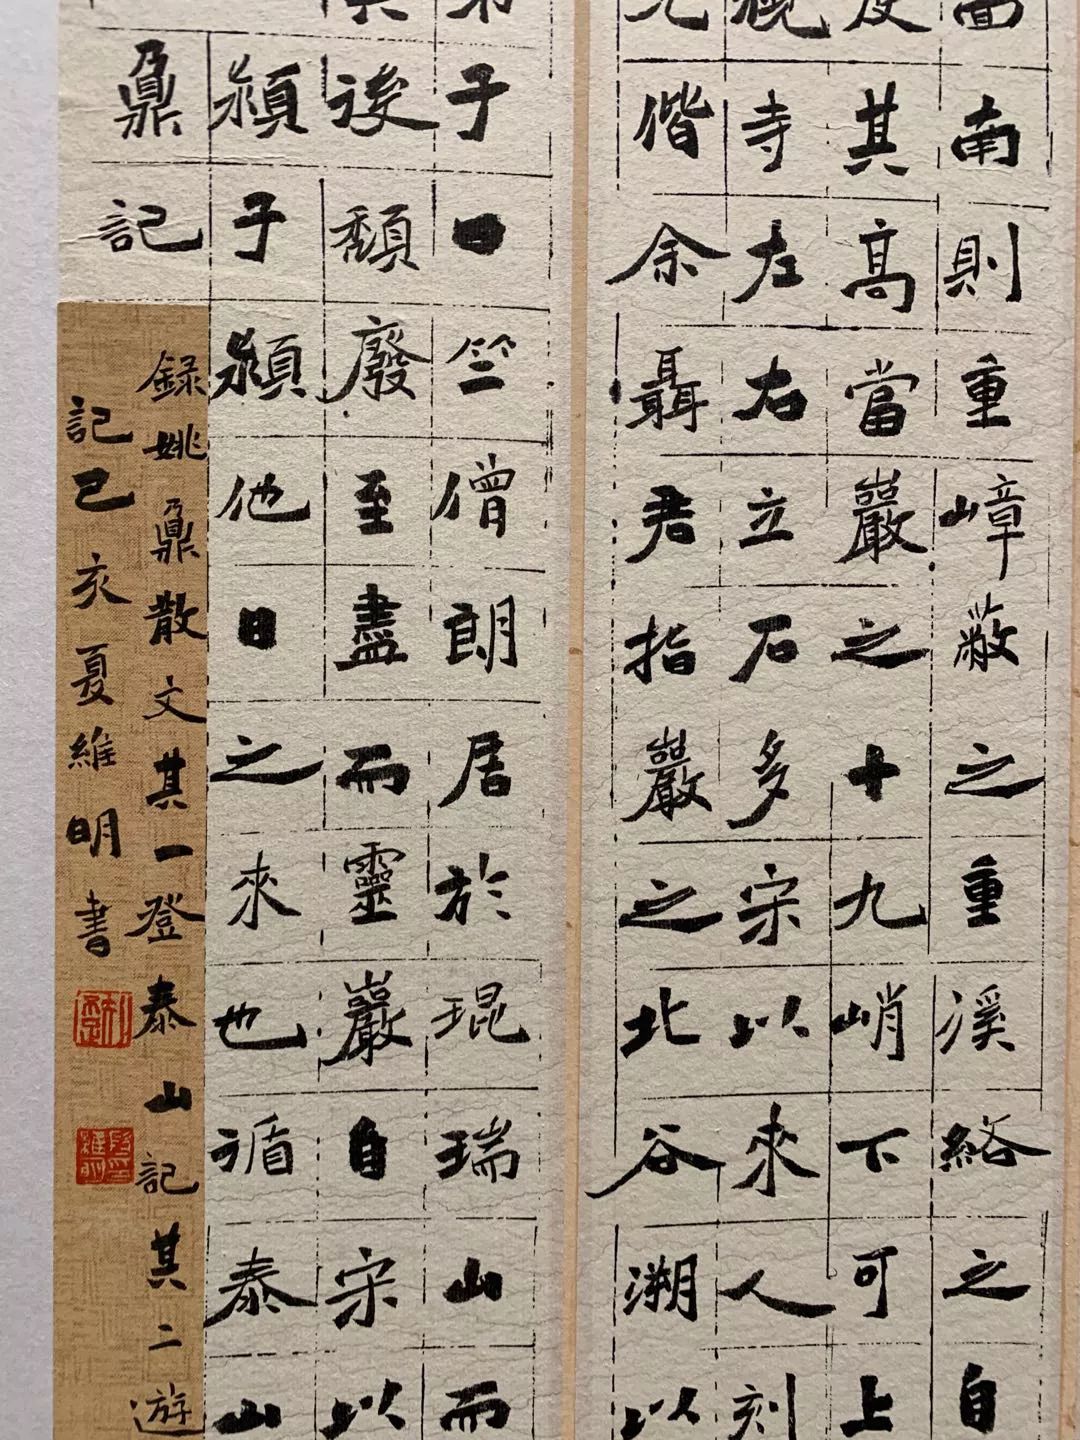 南則重嶂蔽之重溪絡之自
其高當巖之十九峭不可上
寺左右立石多宋以來人刻
偕余聶君指巖之北谷溯以
子曰竺僧朗居於琨瑞山而
後頹廢至盡而靈巖自宋以
潁于潁他日之來也循泰山
鼐記
録姚鼐散文其一登泰山記其二遊
記己亥夏維明書